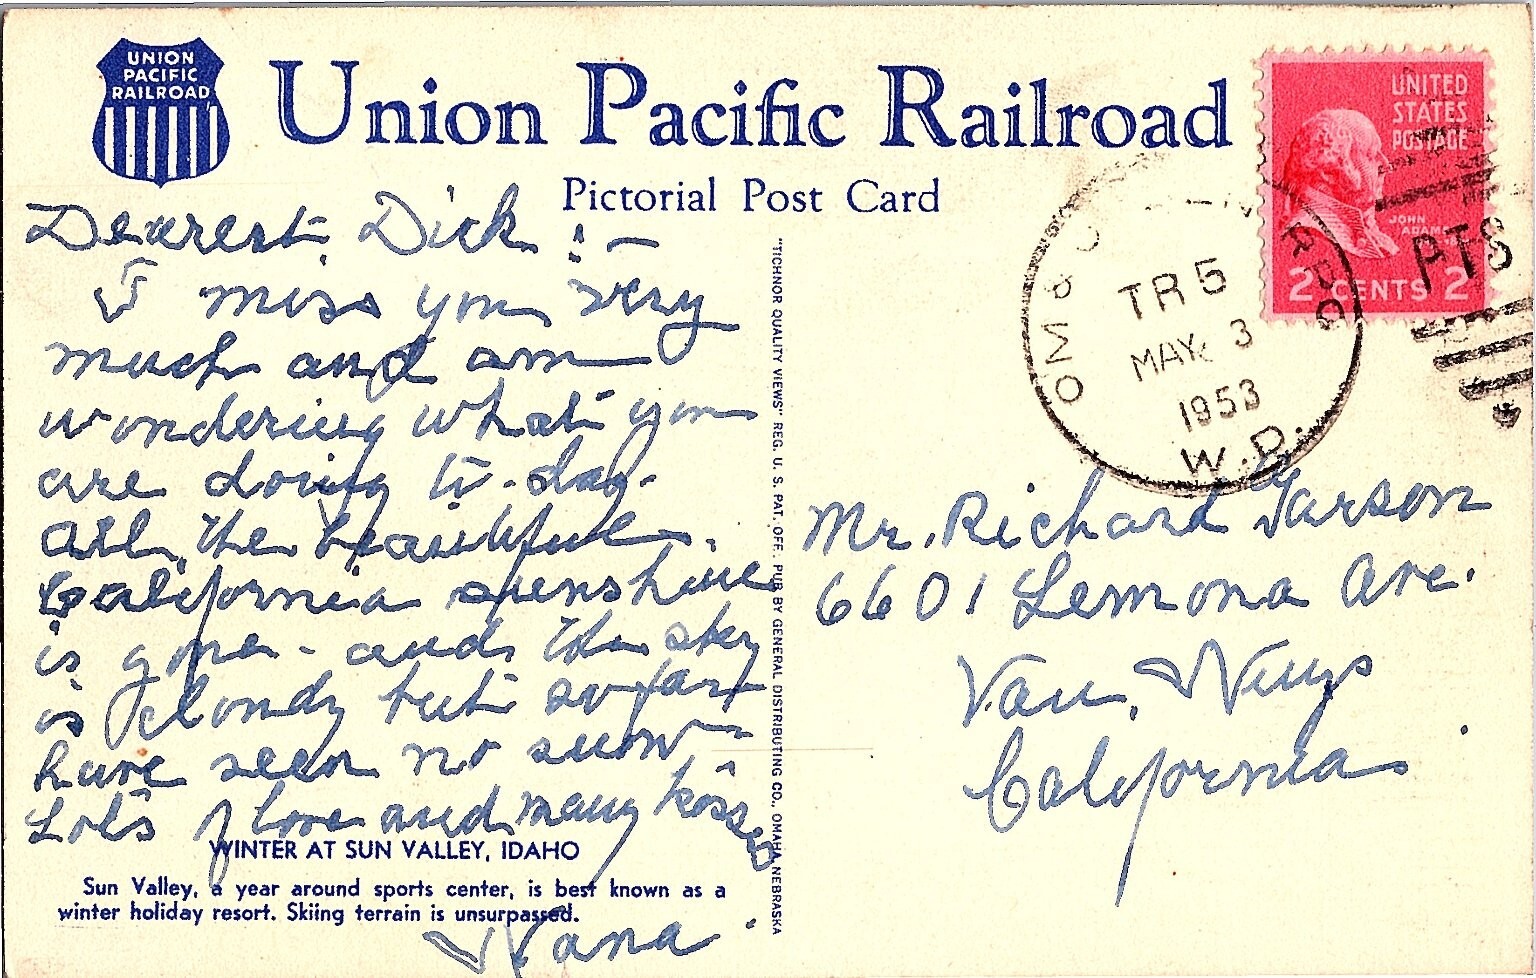 UNION
PACIFIC
RAILROAD
Union Pacific Railroad
Pictorial Post Card
UNITED
STATES
POSTAGE
JOHN
ADAMS
2 CENTS 2
TR 5
MAY 3
1953
PTS
Dearest Dick :-
I miss you very
much and am
wondering what you
are doing to-day.
All the beautiful
California sunshine
is gone - and the sky
is cloudy but so far
have seen no snow -
Lots of love and many kisses
Nana
WINTER AT SUN VALLEY, IDAHO
Sun Valley, a year around sports center, is best known as a
winter holiday resort. Skiing terrain is unsurpassed.
"TICHNOR QUALITY VIEWS" REG. U. S. PAT. OFF. PUB. BY GENERAL DISTRIBUTING CO., OMAHA, NEBRASKA
Mr. Richard Garson
6601 Lemona Ave.
Van Nuys
California